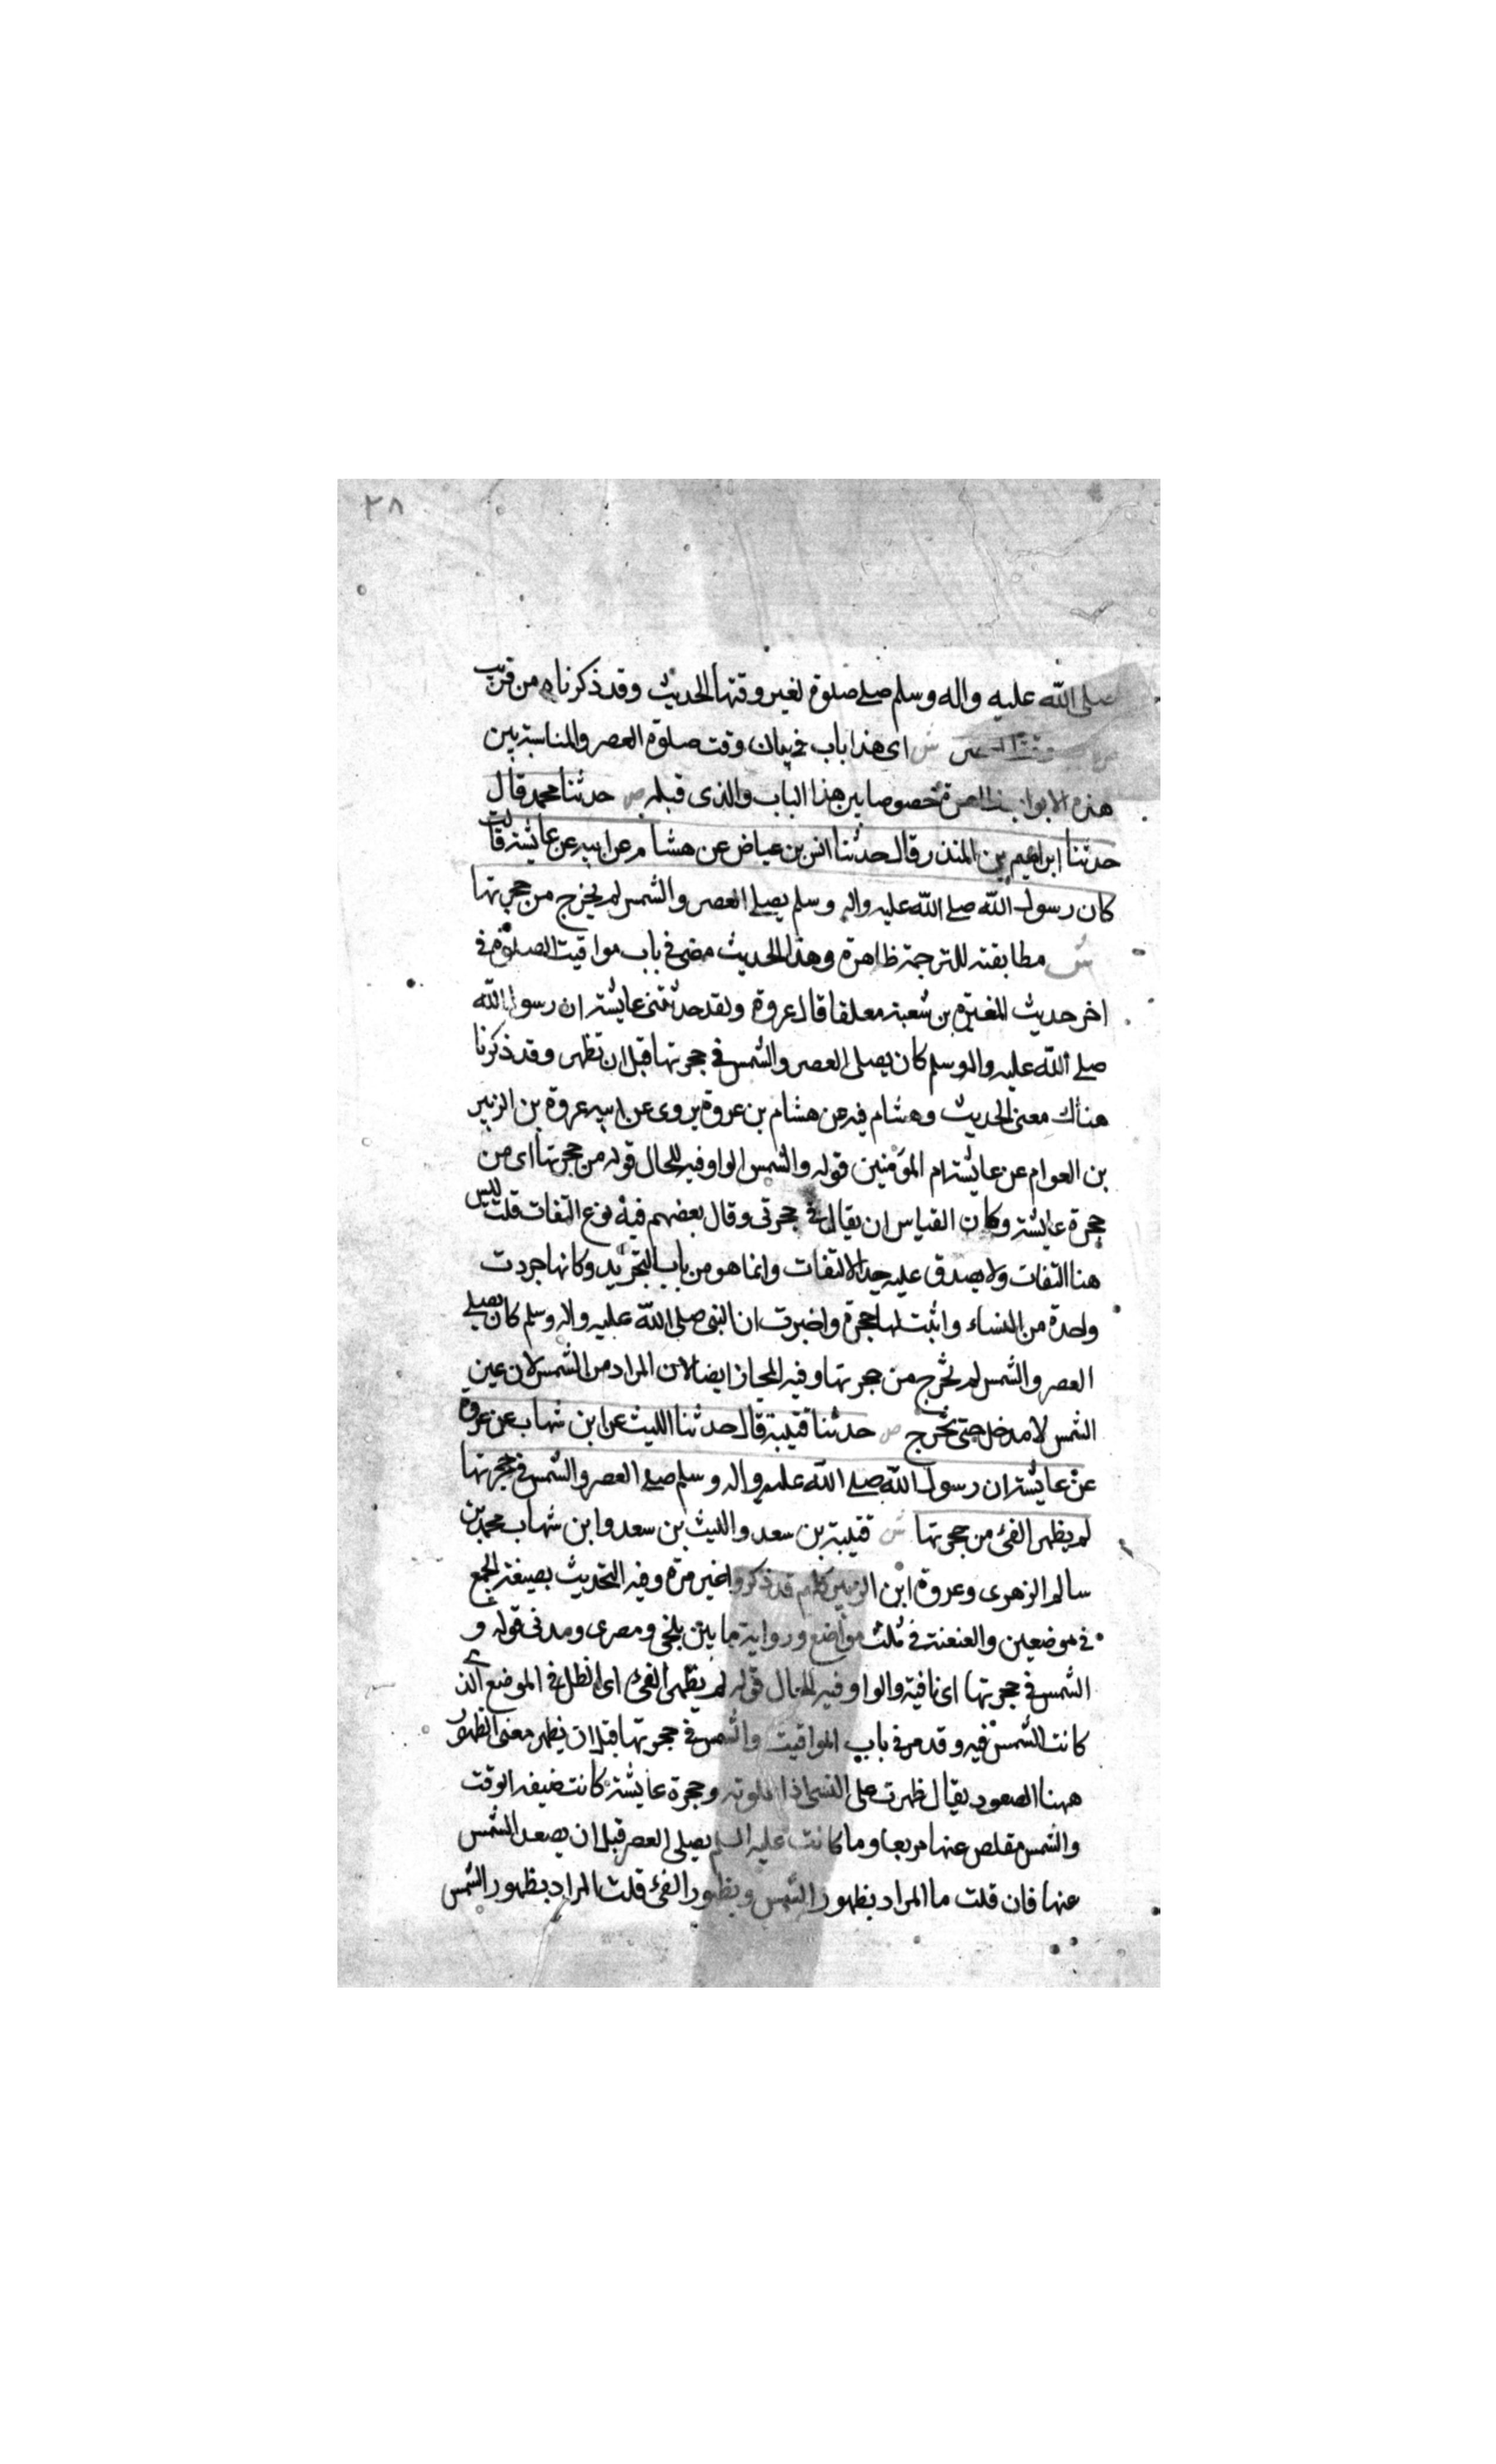 ٢٨
صلى الله عليه واله وسلم صلے صلوة لغير وقتها الحديث وقد ذكرناه من قريب
وقت العصر ش اى هذا باب فى بيان وقت صلوة العصر والمناسبة بين
هذه الابواب ظاهرة خصوصا بين هذا الباب والذى قبله ص حدثنا محمد قال
حدثنا ابراهيم بن المنذر قال حدثنا انس بن عياض عن هشام عن ابيه عن عايشة قالت
كان رسول الله صلے الله عليه واله وسلم يصلے العصر والشمس لم يخرج من حجرتها
ش مطابقته للترجمة ظاهرة وهذا الحديث مضى فى باب مواقيت الصلوة فى
اخر حديث المغيرة بن شعبة معلقا قال عروة ولقد حدثتنى عايشة ان رسول الله
صلے الله عليه واله وسلم كان يصلى العصر والشمس فى حجرتها قبل ان تظهر وقد ذكرنا
هناك معنى الحديث وهشام فيه عن هشام بن عروة يروى عن ابيه عروة بن الزبير
بن العوام عن عايشة ام المؤمنين قوله والشمس الواو فيه للحال قوله من حجرتها اى من
حجرة عايشة وكان القياس ان يقال فى حجرتى وقال بعضهم فيه نوع التفات قلت ليس
هنا التفات ولا يصدق عليه حد الالتفات وانما هو من باب التجريد وكانها جردت
واحدة من النساء واثبت لها حجرة واخبرت ان النبى صلى الله عليه واله وسلم كان يصلے
العصر والشمس لم تخرج من حجرتها وفيه المجاز ايضا لان المراد من الشمس لان عين
الشمس لا مدخل حتى تخرج ص حدثنا قتيبة قال حدثنا الليث عن ابن شهاب عن عروة
عن عايشة ان رسول الله صلے الله عليه واله وسلم صلے العصر والشمس فى حجرتها
لم يظهر الفئ من حجرتها ش قتيبة بن سعد والليث بن سعد وابن شهاب محمد بن
سالم الزهرى وعروة ابن الزبير كلهم قد ذكروا غير مرة وفيه التحديث بصيغة الجمع
فى موضعين والعنعنة فى ثلث مواضع ورواية ما بين بلخى ومصرى ومدنى قوله و
الشمس فى حجرتها اى نافية والواو فيه للحال قوله لم يظهر الفئ اى الظل فى الموضع الذى
كانت الشمس فيه وقد مر فى باب المواقيت والشمس فى حجرتها قبل ان يظهر معنى الظهور
ههنا الصعود يقال ظهرت على الشى اذا علوته وحجرة عايشة كانت ضيقة الوقت
والشمس مقلص عنها مربعا وما كانت عليه السلم يصلى العصر قبل ان يصعد الشمس
عنها فان قلت ما المراد بظهور الشمس وبظهور الفئ قلت المراد بظهور الشمس